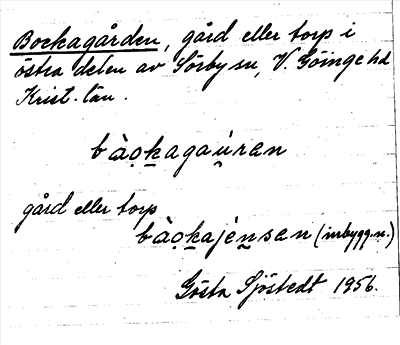 Bockagården, gård eller torp i
östra delen av Sörby sn, V. Göinge hd
Krist. län.
bàọḵagaúṛen
gård eller torp
bàọḵajéṉsen (inbygg.n.)
Gösta Sjöstedt 1956.